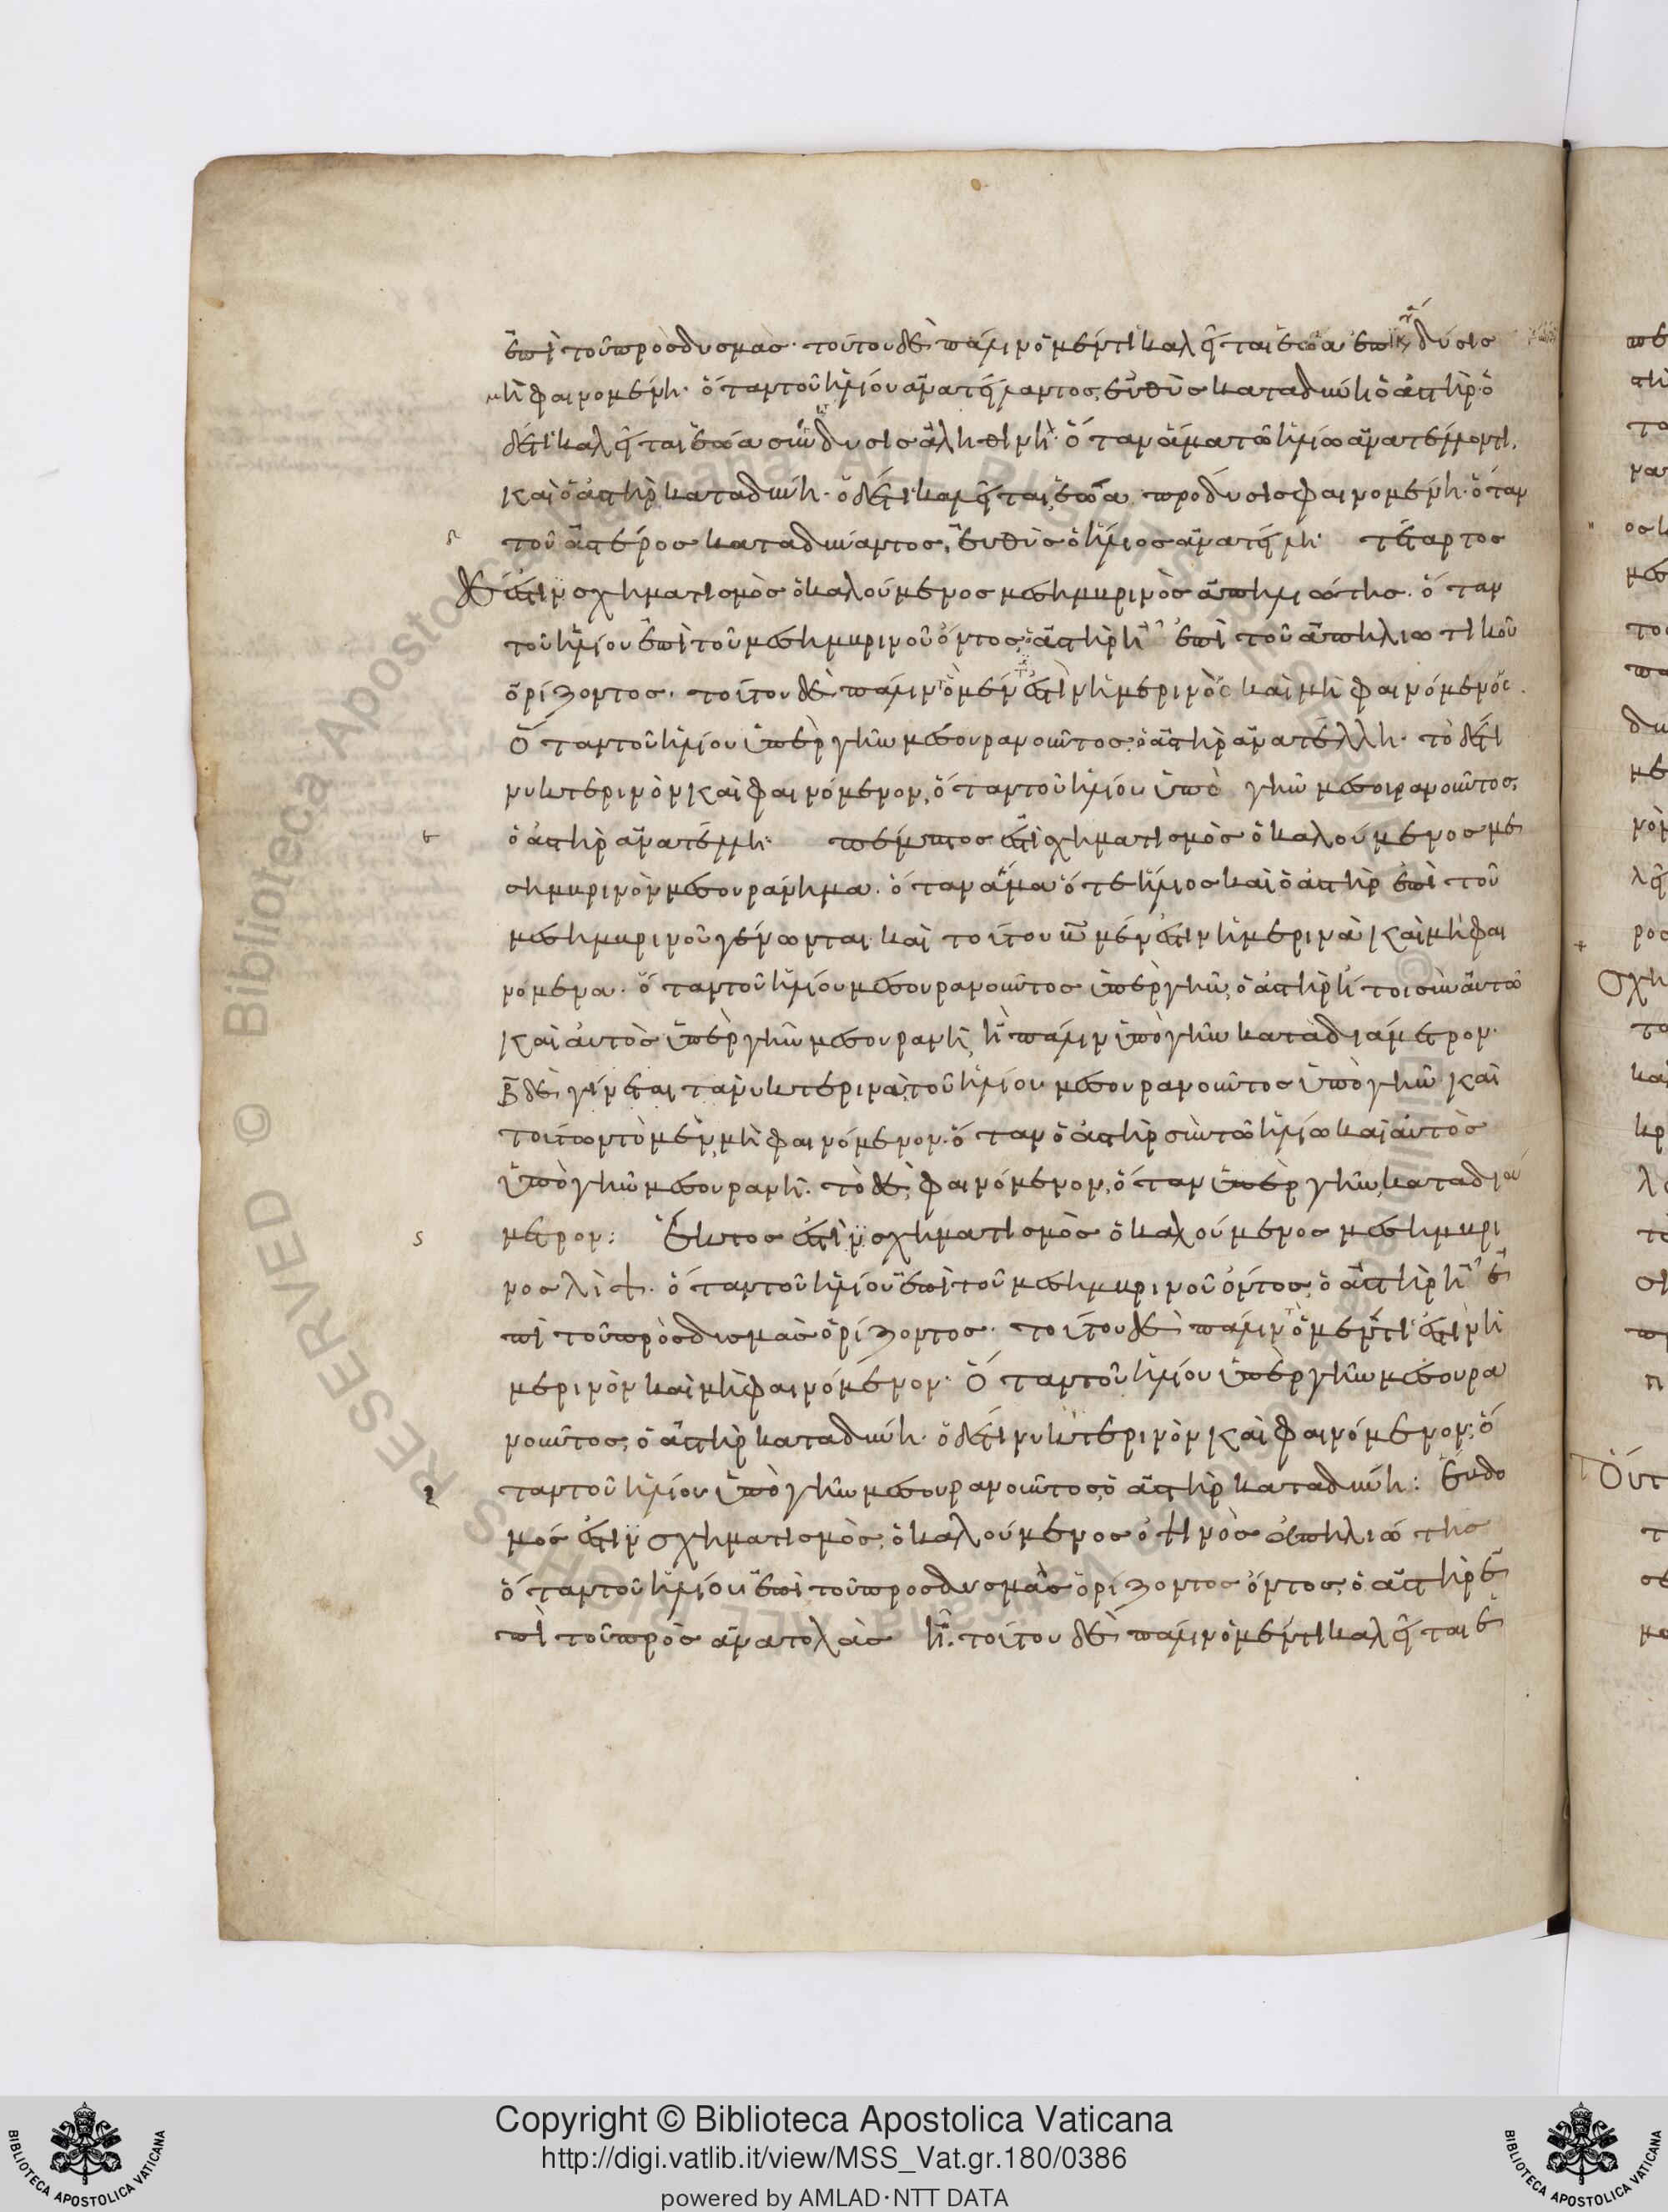 ἐπὶ τοῦ πρὸς δυσμάς· τούτου δὲ πάλιν ὁ μέν τι καλεῖται ἑῴα ἐπικ δύσις
μὴ φαινομένη· ὅταν τοῦ ἡλίου ἀνατείλαντος, εὐθὺς καταδύνῃ ὁ ἀστήρ· ὁ
δέ τι καλεῖται ἑῴα συνδυσις ἀληθινή· ὅταν ἅμα τῶ ἡλίω ἀνατέλλοντι,
καὶ ὁ ἀστὴρ καταδύνῃ· ὁ δέ τι καλεῖται, ἑῴα προδυσις φαινομένη· ὅταν
δ τοῦ ἀστέρος καταδύναντος, εὐθὺς ὁ ἥλιος ἀνατείλη· τέταρτος
δέ ἐστιν σχηματισμὸς ὁ καλούμενος μεσημβρινὸς ἀπηλιώτης· ὅταν
τοῦ ἡλίου ἐπὶ τοῦ μεσημβρινοῦ ὄντος, ὁ ἀστὴρ ἦ ἐπὶ τοῦ ἀπηλιωτικοῦ
ὁρίζοντος· τούτου δὲ πάλιν τὸ μέν τί ἐστιν ἡμερινὸς καὶ μὴ φαινόμενος
Ὅταν τοῦ ἡλίου ὑπὲρ γῆν μεσουρανοῦντος, ὁ ἀστὴρ ἀνατέλλη· τὸ δέ τι
νυκτερινὸν καὶ φαινόμενον, ὅταν τοῦ ἡλίου ὑπὸ γῆν μεσουρανοῦντος,
ε ὁ ἀστὴρ ἀνατέλλη· πέμπτος ἐστὶ σχηματισμὸς ὁ καλούμενος με
σημβρινὸν μεσουράνημα· ὅταν ἅμα ὅ τε ἥλιος καὶ ὁ ἀστὴρ ἐπὶ τοῦ
μεσημβρινοῦ γένωνται· καὶ τούτου μέν ἐστιν ἡμερινὰ καὶ μὴ φαι
νόμενα· ὅταν τοῦ ἡλίου μεσουρανοῦντος ὑπὲρ γῆν, ὁ ἀστὴρ ἤτοι σὺν αὐτῶ
καὶ αὐτὸς ὑπὲρ γῆν μεσουρανῆ, ἢ πάλιν ὑπὸ γῆν κατὰ διάμετρον·
β δὲ γίνεται τὰ νυκτερινά, τοῦ ἡλίου μεσουρανοῦντος ὑπὸ γῆν καὶ
τούτων τὸ μὲν, μὴ φαινόμενον· ὅταν ὁ ἀστὴρ σὺν τῶ ἡλίω καὶ αὐτὸς
ὑπὸ γῆν μεσουρανῆ· τὸ δὲ, φαινόμενον, ὅταν ὑπὲρ γῆν, κατὰ διά
ς μετρον: Ἕκτος ἐστὶν σχηματισμὸς ὁ καλούμενος μεσημβρι
νος λίψ· ὅταν τοῦ ἡλίου ἐπὶ τοῦ μεσημβρινοῦ ὄντος, ὁ ἀστὴρ ἦ ἐ
πὶ τοῦ πρὸς δυσμὰς ὁρίζοντος· τούτου δὲ πάλιν τὸ μέν τί ἐστιν ἡ
μερινὸν καὶ μὴ φαινόμενον· Ὅταν τοῦ ἡλίου ὑπὲρ γῆν μεσουρα
νοῦντος, ὁ ἀστὴρ καταδύνη· ὁ δέ τι νυκτερινὸν καὶ φαινόμενον, ὅ
ταν τοῦ ἡλίου ὑπὸ γῆν μεσουρανοῦντος, ὁ ἀστὴρ καταδύνη: Ἕβδο
μός ἐστιν σχηματισμὸς, ὁ καλούμενος ὀψινὸς ἀπηλιώτης
ὅταν τοῦ ἡλίου ἐπὶ τοῦ προσδυσμὰς ὁρίζοντος ὄντος, ὁ ἀστὴρ ἐ
πὶ τοῦ πρὸς ἀνατολὰς ἦ· τούτου δὲ πάλιν ὁ μέν τι καλεῖται ἑ
Copyright © Biblioteca Apostolica Vaticana
http://digi.vatlib.it/view/MSS_Vat.gr.180/0386
powered by AMLAD·NTT DATA